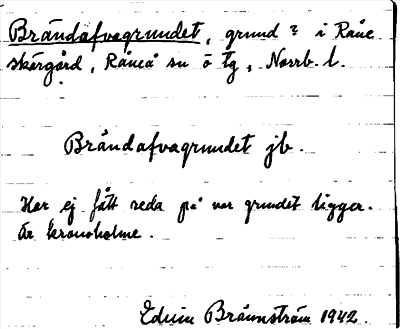 Brändafvagrundet, grund ? i Råne
skärgård, Råneå sn ö tg, Norrb. l.
Brändafvagrundet jb.
Har ej fått reda på var grundet ligger.
Är kronoholme.
Edvin Brännström 1942.